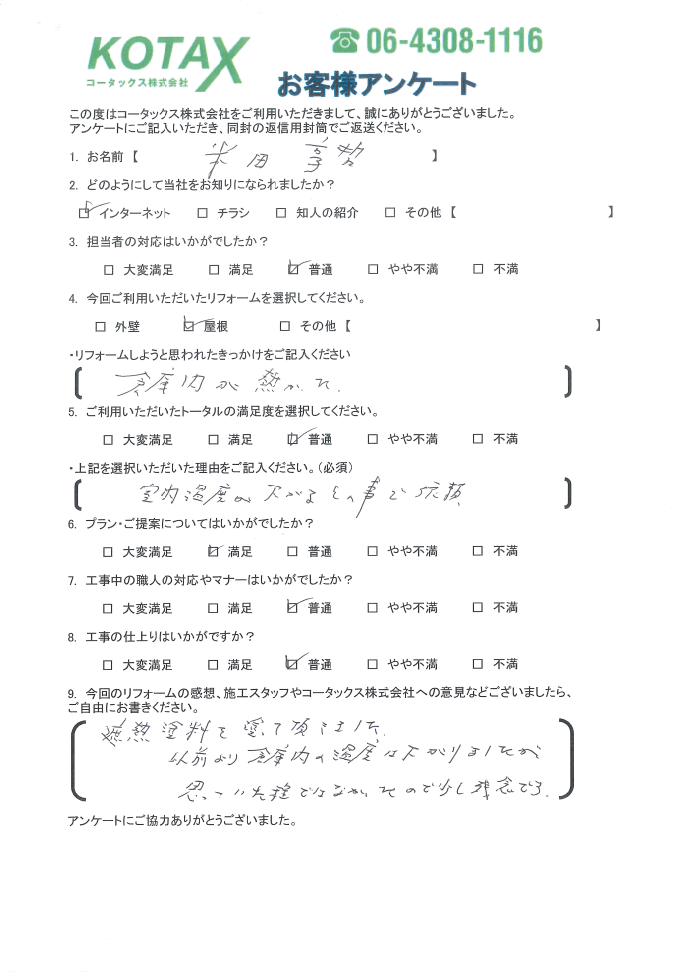 KOTAX
コータックス株式会社
☎ 06-4308-1116
お客様アンケート
この度はコータックス株式会社をご利用いただきまして、誠にありがとうございました。
アンケートにご記入いただき、同封の返信用封筒でご返送ください。
1. お名前【 米田 享 】
2. どのようにして当社をお知りになられましたか？
☑ インターネット □ チラシ □ 知人の紹介 □ その他【 】
3. 担当者の対応はいかがでしたか？
□ 大変満足 □ 満足 ☑ 普通 □ やや不満 □ 不満
4. 今回ご利用いただいたリフォームを選択してください。
□ 外壁 ☑ 屋根 □ その他【 】
・リフォームしようと思われたきっかけをご記入ください
倉庫内が熱かった.
5. ご利用いただいたトータルの満足度を選択してください。
□ 大変満足 □ 満足 ☑ 普通 □ やや不満 □ 不満
・上記を選択いただいた理由をご記入ください。（必須）
室内温度が下がるとの事で依頼
6. プラン・ご提案についてはいかがでしたか？
□ 大変満足 ☑ 満足 □ 普通 □ やや不満 □ 不満
7. 工事中の職人の対応やマナーはいかがでしたか？
□ 大変満足 □ 満足 ☑ 普通 □ やや不満 □ 不満
8. 工事の仕上りはいかがですか？
□ 大変満足 □ 満足 ☑ 普通 □ やや不満 □ 不満
9. 今回のリフォームの感想、施工スタッフやコータックス株式会社への意見などございましたら、
ご自由にお書きください。
遮熱塗料を塗って頂きました.
以前より倉庫内の温度は下がりましたが
思っていた程ではなかったので少し残念です.
アンケートにご協力ありがとうございました。